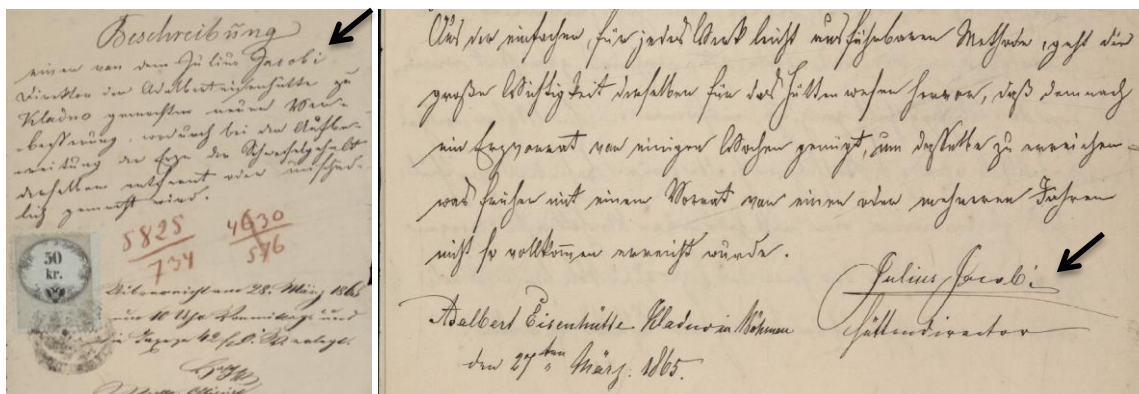 Beschreibung
einer von dem Julius Jacobi
Direktor der Adalberteisenhütte zu
Kladno gemachten neuen Ver-
besserung, wodurch bei der Aufbe-
reitung der Erze der Schwefelgehalt
derselben entfernt oder unschäd-
lich gemacht wird.
5825
734
4630
576
50
kr.
Überreicht am 28. März 1865
um 10 Uhr Vormittags und
die Taxe
Aus der einfachen, für jedes Werk leicht ausführbaren Methode, geht die
große Wichtigkeit derselben für das Hüttenwesen hervor, daß demnach
ein Erzvorrat von einigen Wochen genügt, um dasselbe zu erreichen
was früher mit einem Vorrat von einen oder mehreren Jahren
nicht so vollkommen erreicht wurde.
Julius Jacobi
Hüttendirector
Adalbert Eisenhütte Kladno in Böhmen
den 27ten März. 1865.